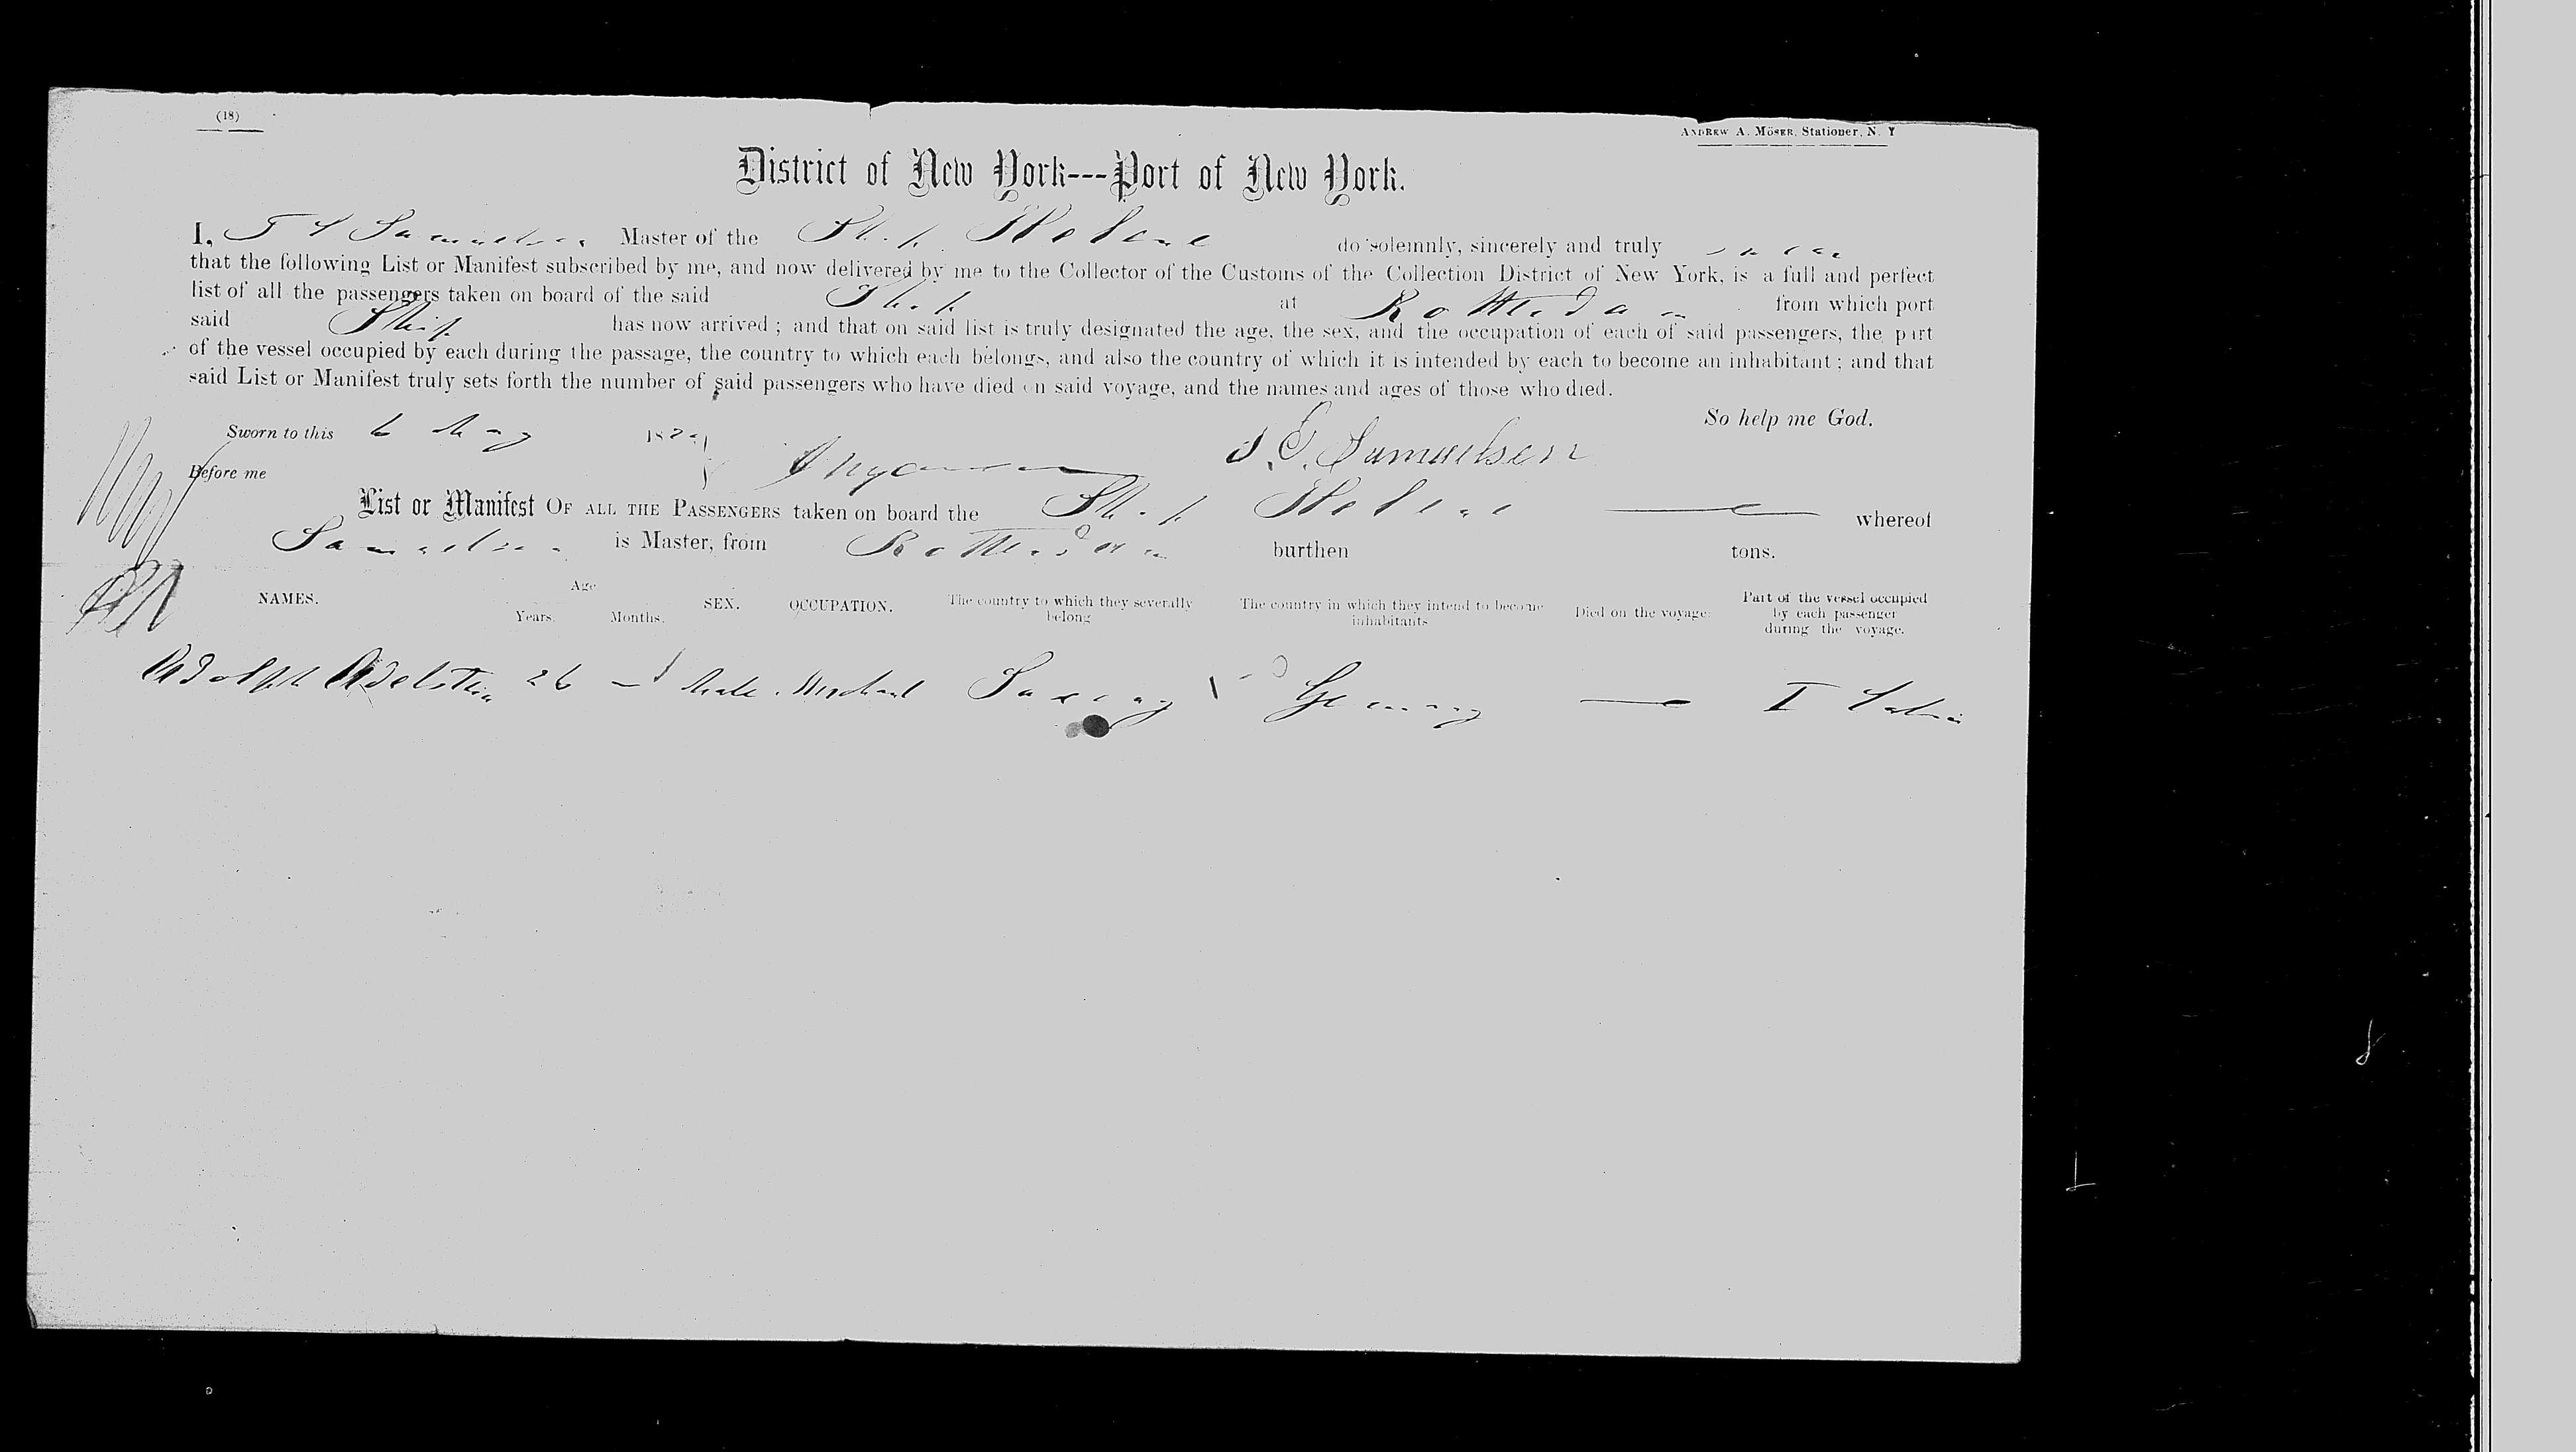 (18)
ANDREW A. MÖSER, Stationer, N. Y
District of New York---Port of New York.
I, Samuelsen Master of the Ship Helene do solemnly, sincerely and truly swear
that the following List or Manifest subscribed by me, and now delivered by me to the Collector of the Customs of the Collection District of New York, is a full and perfect
list of all the passengers taken on board of the said Ship at Rotterdam from which port
said Ship has now arrived ; and that on said list is truly designated the age, the sex, and the occupation of each of said passengers, the part
of the vessel occupied by each during the passage, the country to which each belongs, and also the country of which it is intended by each to become an inhabitant ; and that
said List or Manifest truly sets forth the number of said passengers who have died on said voyage, and the names and ages of those who died.
So help me God.
Sworn to this 6 May 18
Before me
Samuelsen
List or Manifest OF ALL THE PASSENGERS taken on board the Ship Helene whereof
Samuelsen is Master, from Rotterdam burthen tons.
NAMES. Age Years. Months. SEX. OCCUPATION. The country to which they severally belong The country in which they intend to become inhabitants Died on the voyage. Part of the vessel occupied by each passenger during the voyage.
Adolph Adelstein 26 — Male Merchant Saxony Germany — I Cabin